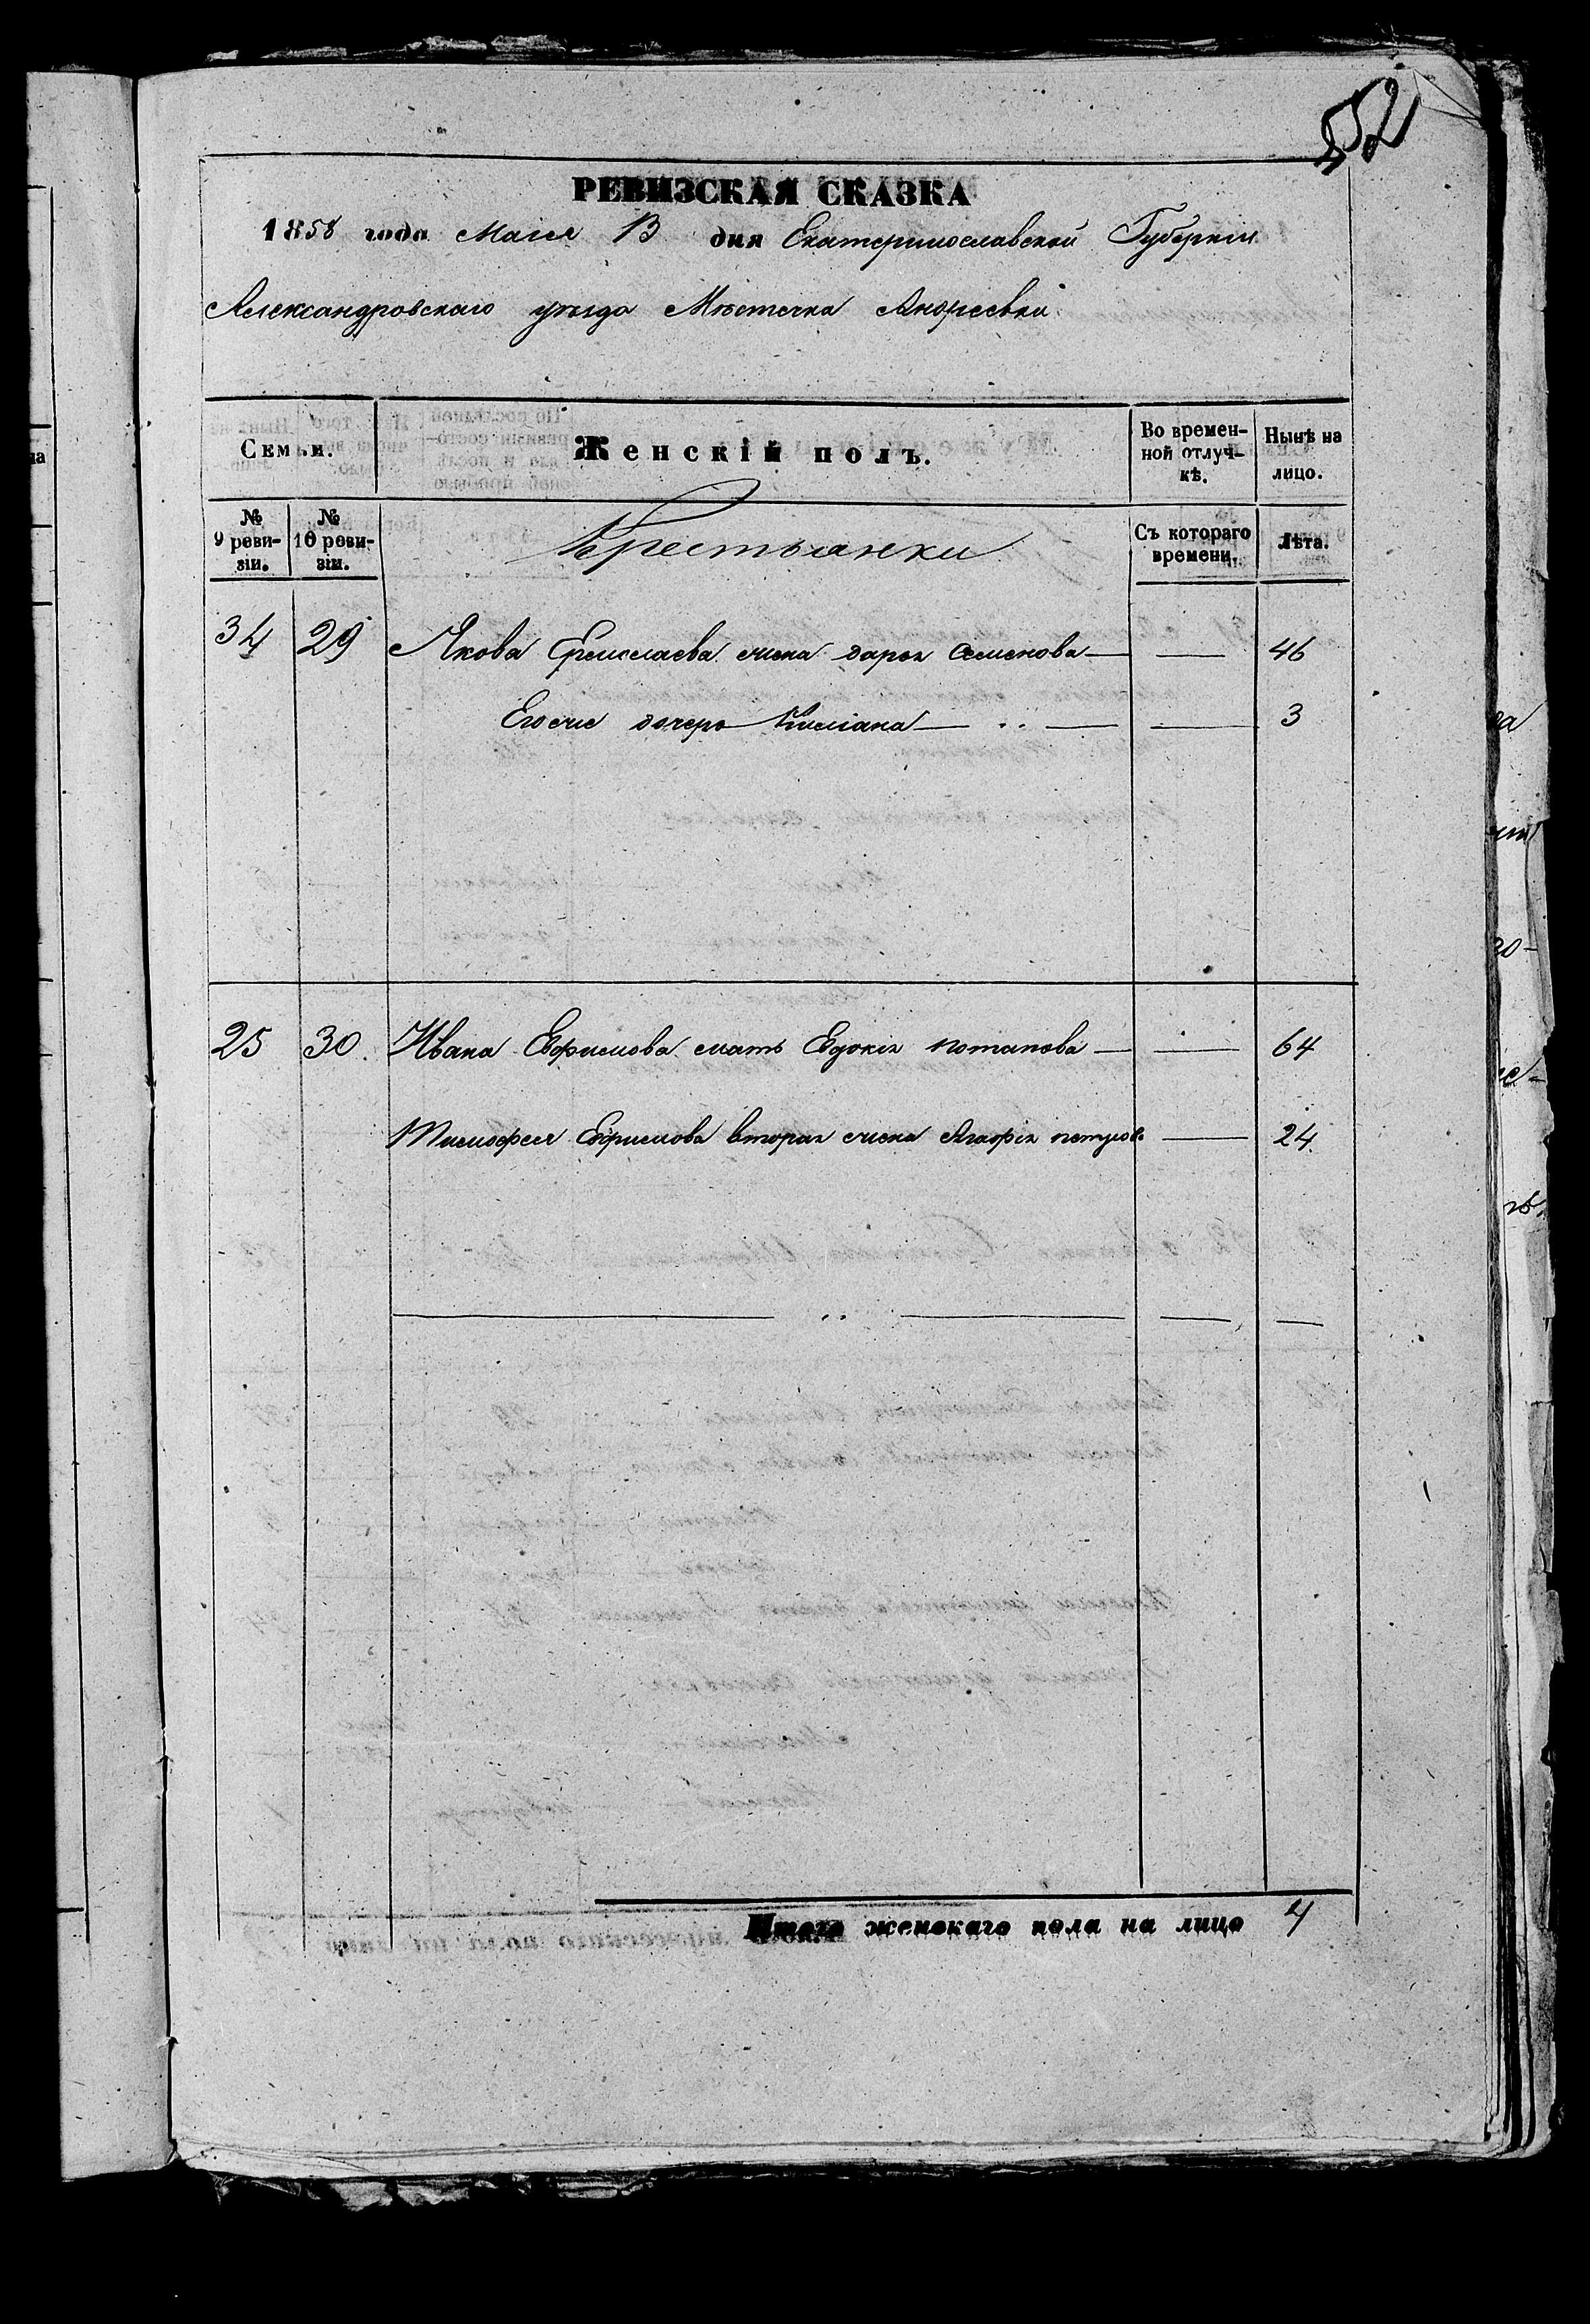 552
РЕВИЗСКАЯ СКАЗКА
1858 года Маія 13 дня Екатеринославской Губерніи
Александровскаго уѣзда Мѣстечка Андреевки
Семьи.
Женскій полъ.
Во времен-
ной отлуч-
кѣ.
Нынѣ на
лицо.
№
9 реви-
зіи.
№
10 реви-
зіи.
Крестьянки
Съ котораго
времени.
Лѣта.
34 29 Якова Ермолаева жена дарья Семенова 46
Его же дочерь 3
25 30. Ивана Ефимова мать Евдокія потапова 64
Тимофея Ефимова вторая жена Агафія 24.
Итого женскаго пола на лицо 4